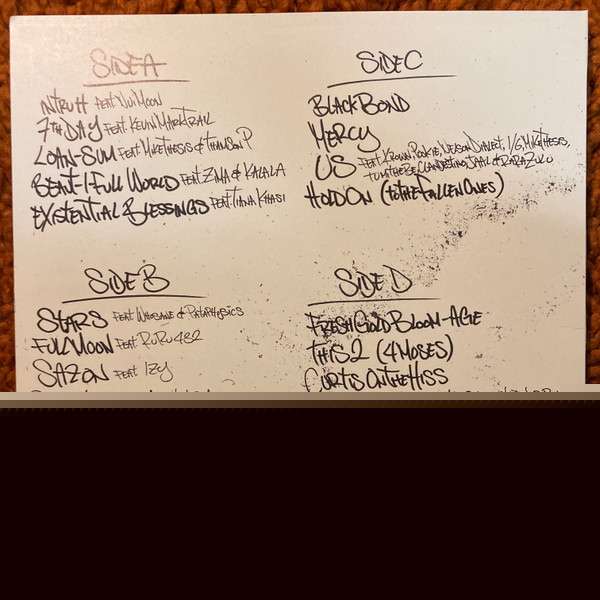 SIDE A
NTRUTH FEAT NUI MOON
7TH DAY FEAT KEVIN MARK TRAIL
LOAN-SUM FEAT MIKE THESIS & THAMSON P
BEAUT-I-FULL WORLD FEAT ZIMA & KALALA
EXISTENTIAL BLESSINGS FEAT TIANA KHASI
SIDE B
STARS FEAT WHOSANE & PATAPHYSICS
FULL MOON FEAT RURU432
SAZON FEAT IZY
SIDE C
BLACK BOND
MERCY
US FEAT KROWN, POOKIE, NELSON DIALECT, 1/6, MIKE THESIS,
TUMI THE BE, CLANDESTINO, JAAL & RARA ZULU
HOLD ON (TO THE FALLEN ONES)
SIDE D
FRESH GOLD BLOOM-AGE
THIS 2 (4 MOSES)
CURTIS ON THE HISS